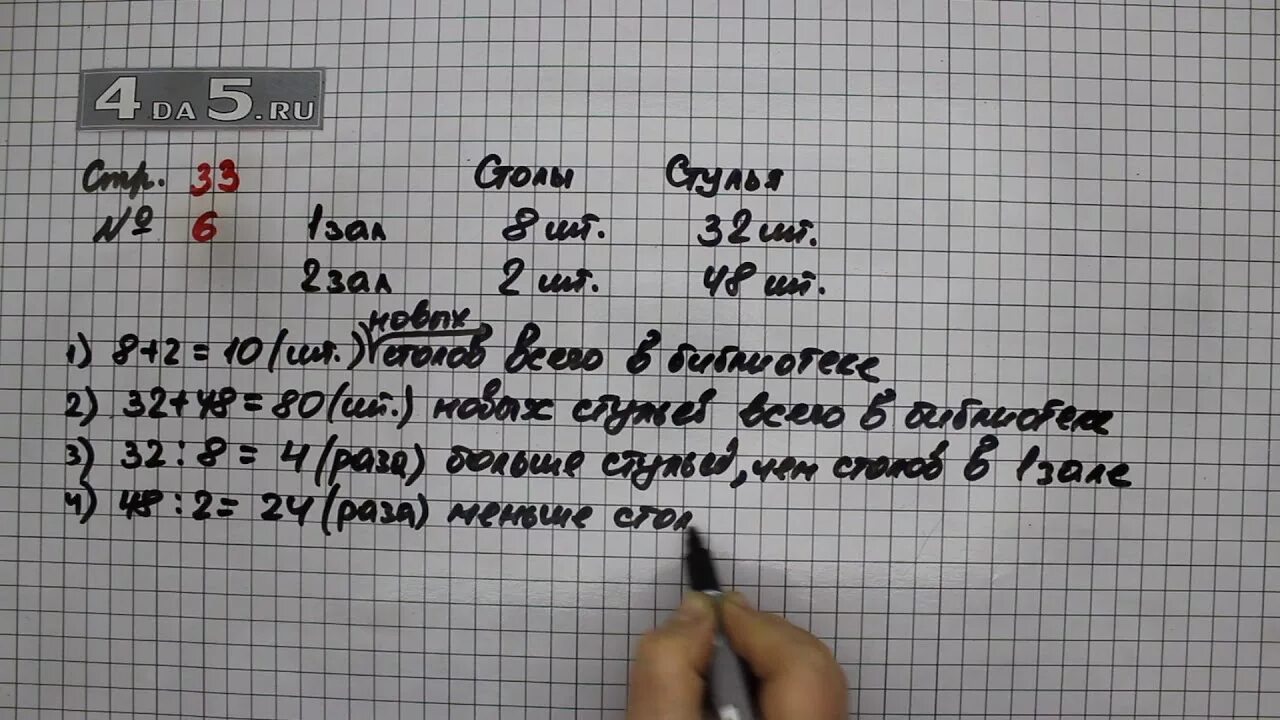 4DA5.RU
Стр. 33 Столы Стулья
№ 6 1 зал 8 шт. 32 шт.
2 зал 2 шт. 48 шт.
новых
1) 8+2=10 (шт.) столов всего в библиотеке
2) 32+48=80 (шт.) новых стульев всего в библиотеке
3) 32:8=4 (раза) больше стульев, чем столов в 1 зале
4) 48:2=24 (раза) меньше стол